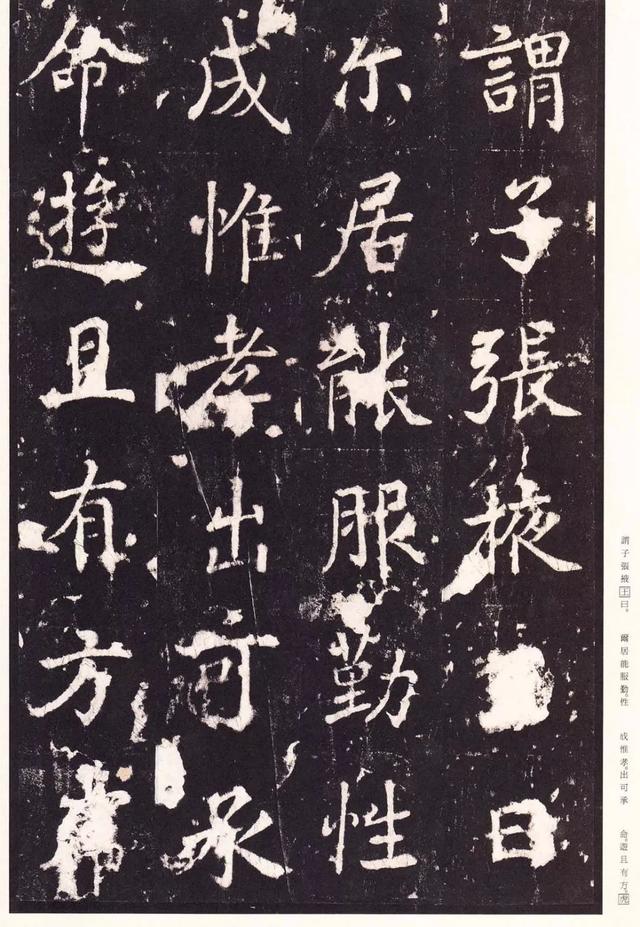 謂子張掖曰
尔居能服勤性
成惟孝出可承
命遊且有方
謂子張掖王曰。 爾居能服勤。性 成惟孝。出可承 命。遊且有方。虎